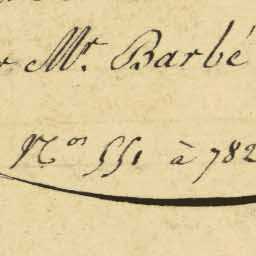 Mr. Barbé
Nos 551 à 782